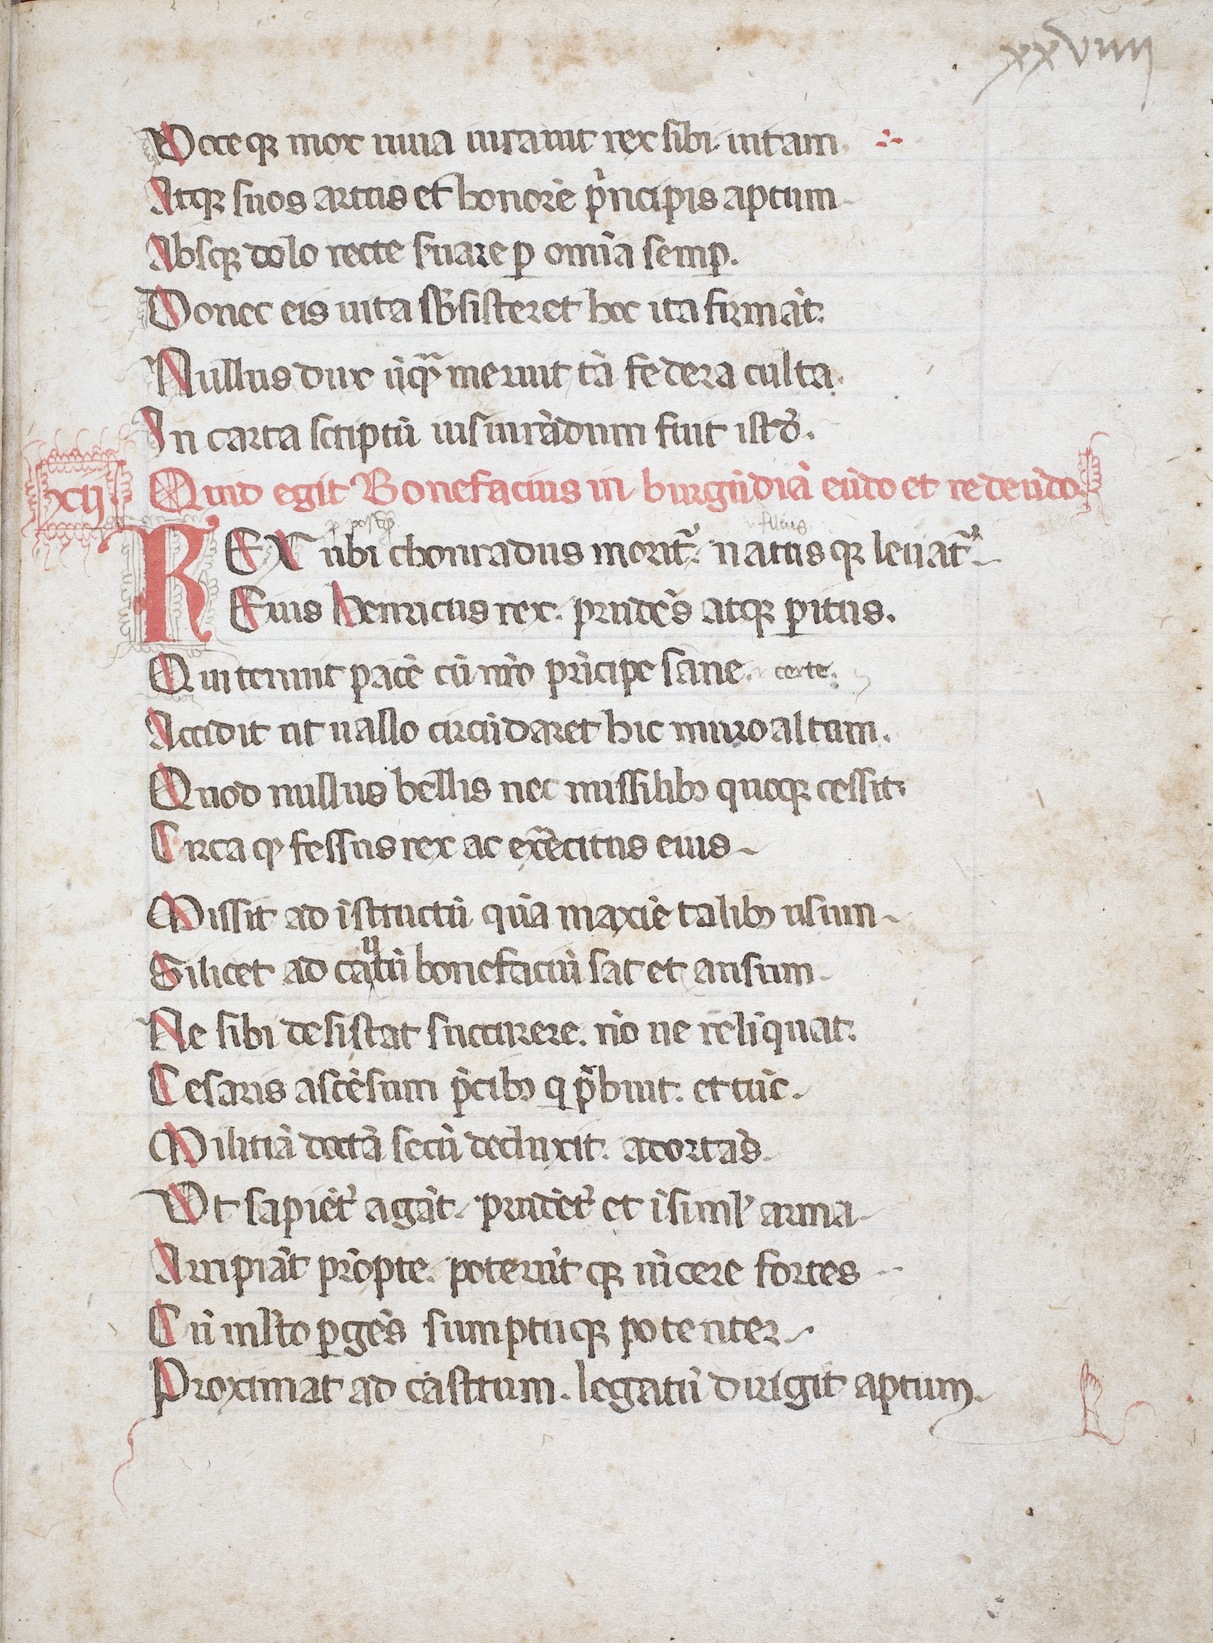 xxviiii
Voce qꝫ mox uiua iurauit rex sibi uitam
Atqꝫ suos artus et honorē prīcipis aptum
Absqꝫ dolo recte s̄uare ꝑ omīa semꝑ.
Donec eis uita sb̄sisteret hoc ita firmāt.
Nullus dux ūqᷓ meruit tā federa culta.
In carta scriptū iusiurādum fuit istð.
xij Quid egit Bonefacius in burgūdiā eūdo et redeūdo
REX ubi chonradus morit᷑. natus qꝫ leuat᷑
filius
Eius henricus rex. prudēs atqꝫ ꝑitus.
Qui tenuit pacē cū nr̄o prīcipe sane. certe.
Accidit ut uallo circūdaret hic muro altam.
Quod nullus bellis nec missilibꝫ quoqꝫ cessit
Circa qꝫ fessus rex ac exercitus eius
Missit ad īstructū quīa maxīe talibꝫ usum
Silicet ad cautū bonefaciū sat et ausum
Ne sibi desistat succurere. nō ne relīquat.
Cesaris ascēsum p̄cibꝫ q p̄buit. et tūc.
Militiā doctā secū deduxit. adortās.
Vt sapiēt᷑ agāt. prudēt᷑ et īsimul arma
Arripiāt prōpte. poterūt qꝫ uīcere fortes
Cū ml̄to ꝑgēs sumptu qꝫ potenter
Proximat ad castrum. legatū dirigit aptum.